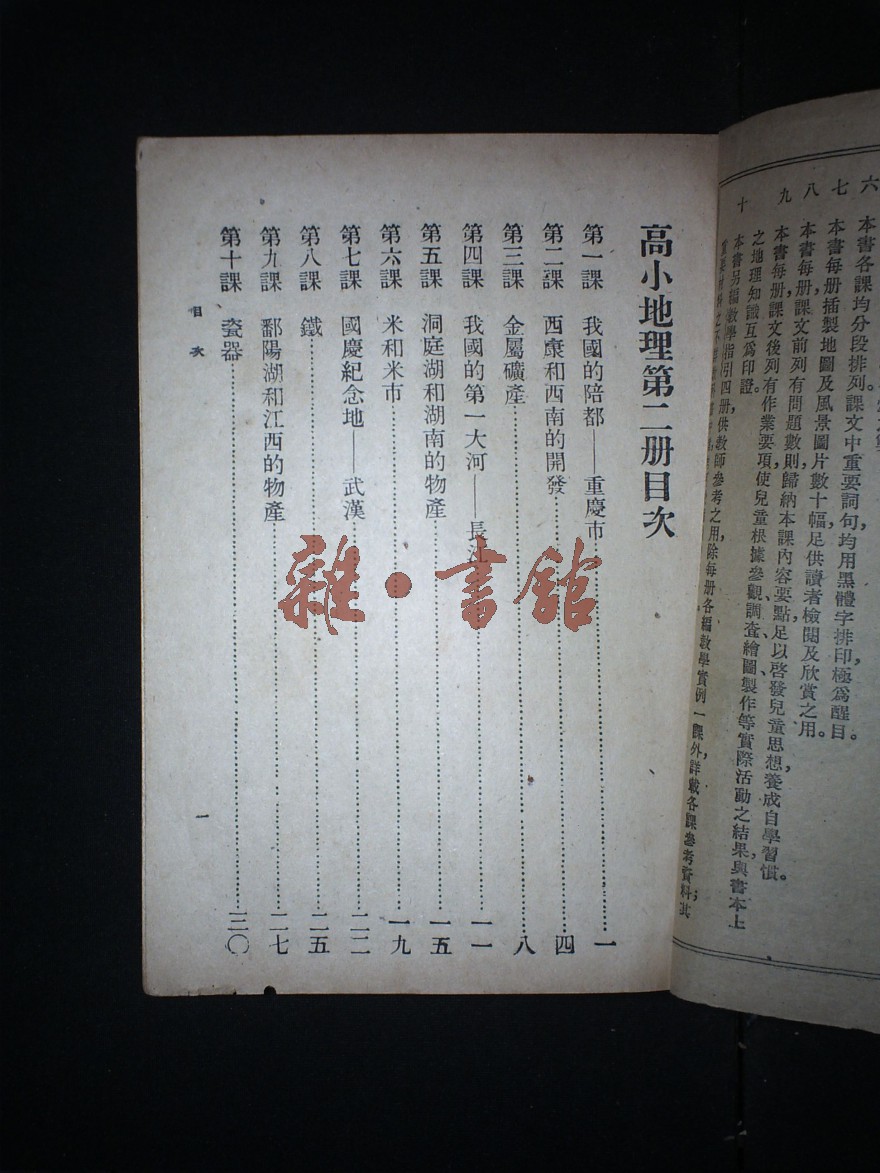 六
本書各課均分段排列課文中重要詞句,均用黑體字排印極爲醒目。
七
本書每册插製地圖及風景圖片數十幅,足供讀者檢閱及欣賞之用。
八
本書每册課文前列有問題數則歸納本課內容要點足以啓發兒童思想養成自學習慣。
九
本書每册課文後列有作業要項,使兒童根據參觀、調查、繪圖、製作等實際活動之結果,與書本上
之地理知識互爲印證。
十
本書另編教學指引四册,供教師參考之用,除每册各編教學實例一課外,詳載各課參考資料;其
高小地理第二册目次
第一課 我國的陪都——重慶市……一
第二課 西康和西南的開發……四
第三課 金屬礦產……八
第四課 我國的第一大河——長江……一一
第五課 洞庭湖和湖南的物產……一五
第六課 米和米市……一九
第七課 國慶紀念地——武漢……二二
第八課 鐵……二五
第九課 鄱陽湖和江西的物產……二七
第十課 瓷器……三〇
目次
一
雜·書館